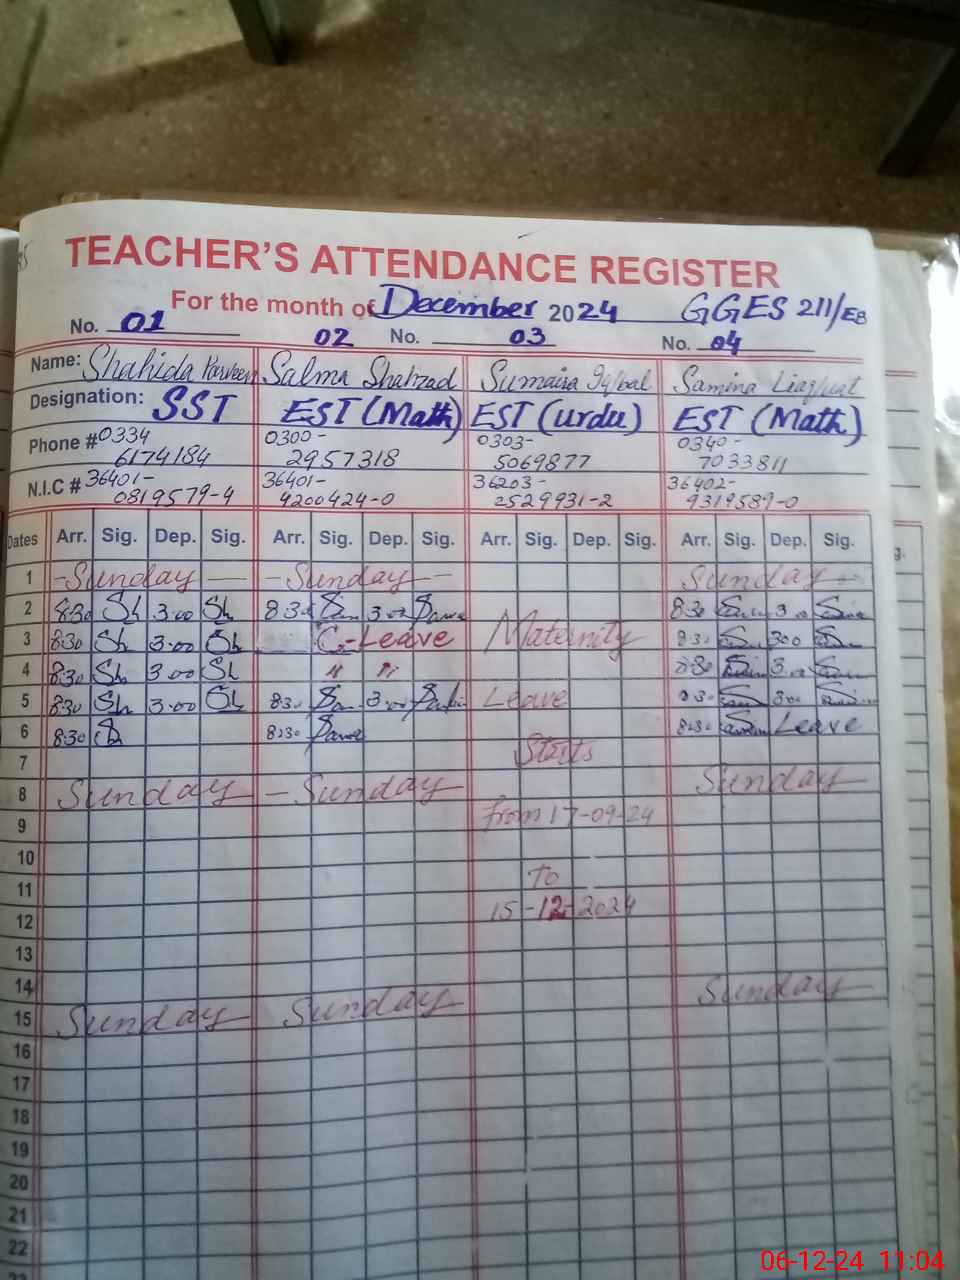 TEACHER'S ATTENDANCE REGISTER
For the month of December 2024 GGES 211/EB
No. 01 02 No. 03 No. 04
Name: Shahida Parveen Salma Shahzad Sumaira Iqbal Samina Liaqat
Designation: SST EST (Math) EST (Urdu) EST (Math)
Phone # 0334 0300- 0303- 0340-
6174184 2957318 5069877 7033811
N.I.C # 36401- 36401- 36203- 36402-
0819579-4 4200424-0 2529931-2 9319589-0
Dates Arr. Sig. Dep. Sig. Arr. Sig. Dep. Sig. Arr. Sig. Dep. Sig. Arr. Sig. Dep. Sig.
1 -Sunday- -Sunday- Sunday-
2 8:30 Sh 3:00 Sh 8:30 3:00 8:30 3:00
3 8:30 Sh 3:00 Sh C-Leave Maternity 8:30 3:00
4 8:30 Sh 3:00 Sh " " 8:30 3:00
5 8:30 Sh 3:00 Sh 8:30 3:00 Leave 8:30 3:00
6 8:30 8:30 8:30 Leave
7 Starts
8 Sunday - Sunday Sunday
9 from 17-09-24
10
11 To
12 15-12-2024
13
14
15 Sunday Sunday Sunday
16
17
18
19
20
21
22
23
g.
06-12-24 11:04